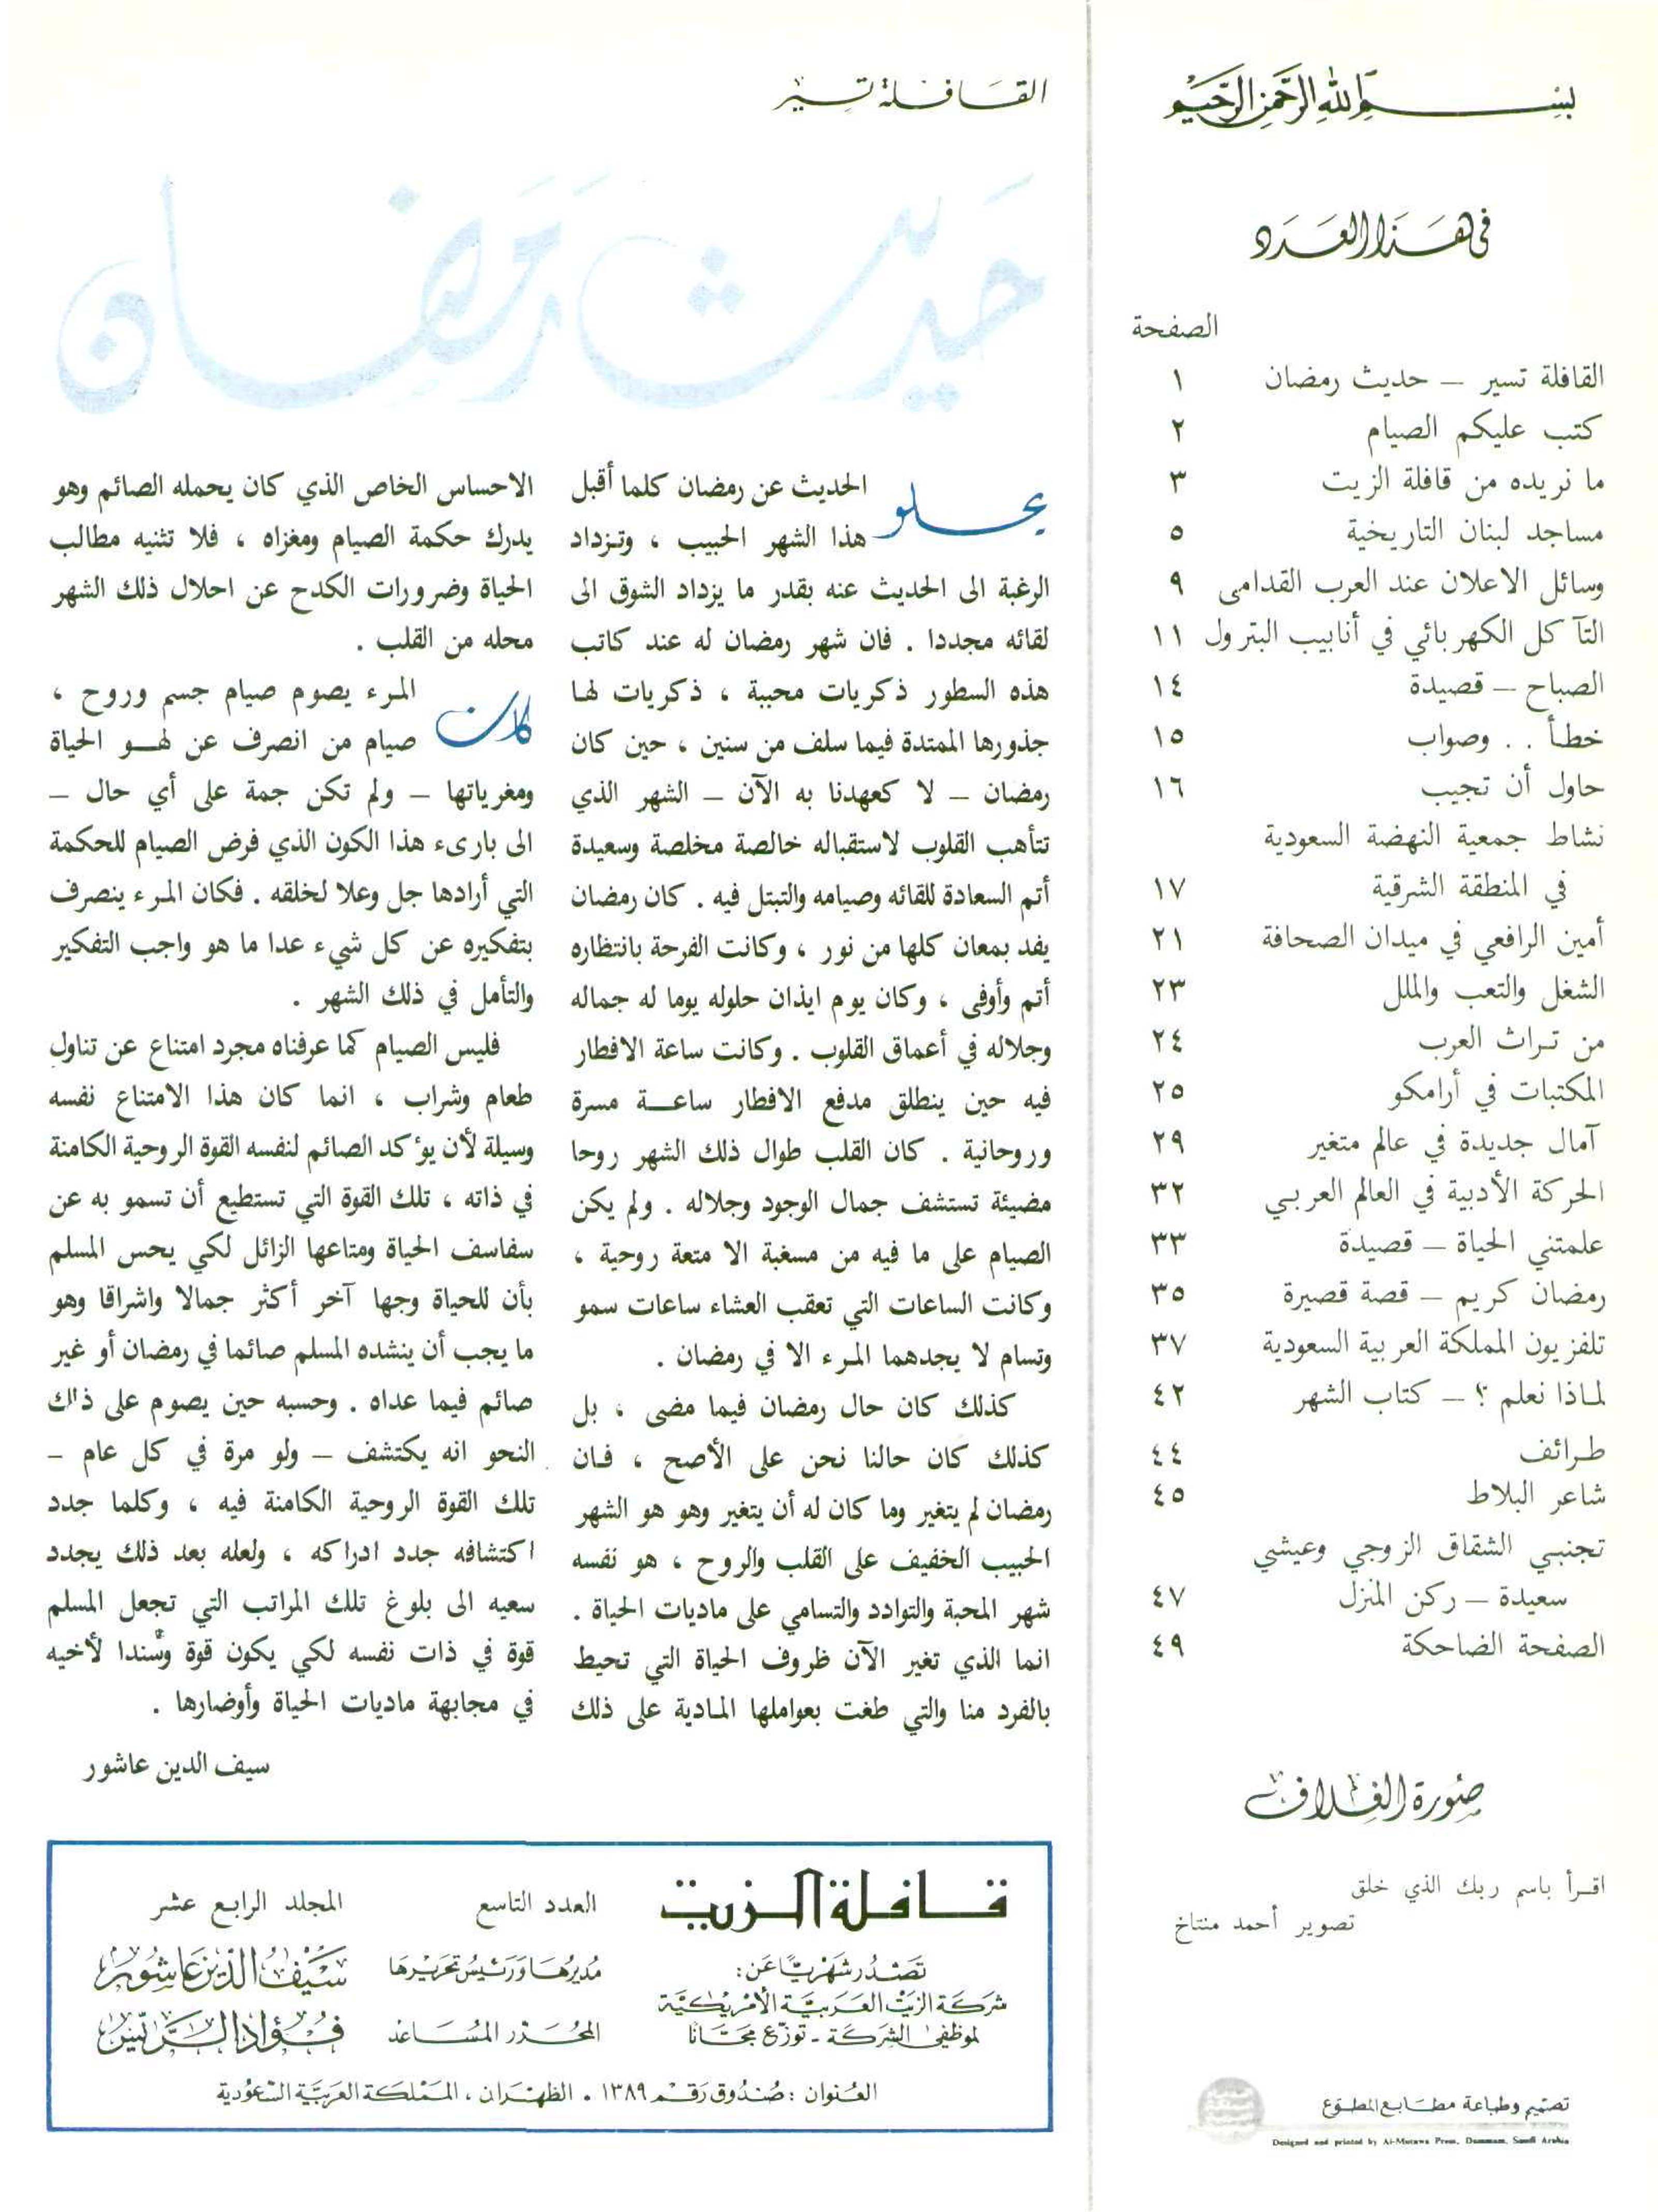 بسم الله الرحمن الرحيم
في هذا العدد
الصفحة
القافلة تسير – حديث رمضان ١
كتب عليكم الصيام ٢
ما نريده من قافلة الزيت ٣
مساجد لبنان التاريخية ٥
وسائل الاعلان عند العرب القدامى ٩
التآكل الكهربائي في أنابيب البترول ١١
الصباح – قصيدة ١٤
خطأ . . وصواب ١٥
حاول أن تجيب ١٦
نشاط جمعية النهضة السعودية
في المنطقة الشرقية ١٧
أمين الرافعي في ميدان الصحافة ٢١
الشغل والتعب والملل ٢٣
من تراث العرب ٢٤
المكتبات في أرامكو ٢٥
آمال جديدة في عالم متغير ٢٩
الحركة الأدبية في العالم العربي ٣٢
علمتني الحياة – قصيدة ٣٣
رمضان كريم – قصة قصيرة ٣٥
تلفزيون المملكة العربية السعودية ٣٧
لماذا نعلم ؟ – كتاب الشهر ٤٢
طرائف ٤٤
شاعر البلاط ٤٥
تجنبي الشقاق الزوجي وعيشي
سعيدة – ركن المنزل ٤٧
الصفحة الضاحكة ٤٩
صورة الغلاف
اقرأ باسم ربك الذي خلق
تصوير أحمد منتاخ
تصميم وطباعة مطابع المطوع
Designed and printed by Al-Mutawa Press, Dammam, Saudi Arabia
القافلة تسير
حديث رمضان
يحلو الحديث عن رمضان كلما أقبل
هذا الشهر الحبيب ، وتزداد
الرغبة الى الحديث عنه بقدر ما يزداد الشوق الى
لقائه مجددا . فان شهر رمضان له عند كاتب
هذه السطور ذكريات محببة ، ذكريات لها
جذورها الممتدة فيما سلف من سنين ، حين كان
رمضان – لا كعهدنا به الآن – الشهر الذي
تتأهب القلوب لاستقباله خالصة مخلصة وسعيدة
أتم السعادة للقائه وصيامه والتبتل فيه . كان رمضان
يفد بمعان كلها من نور ، وكانت الفرحة بانتظاره
أتم وأوفى ، وكان يوم ايذان حلوله يوما له جماله
وجلاله في أعماق القلوب . وكانت ساعة الافطار
فيه حين ينطلق مدفع الافطار ساعة مسرة
وروحانية . كان القلب طوال ذلك الشهر روحا
مضيئة تستشف جمال الوجود وجلاله . ولم يكن
الصيام على ما فيه من مسغبة الا متعة روحية ،
وكانت الساعات التي تعقب العشاء ساعات سمو
وتسام لا يجدهما المرء الا في رمضان .
كذلك كان حال رمضان فيما مضى ، بل
كذلك كان حالنا نحن على الأصح ، فان
رمضان لم يتغير وما كان له أن يتغير وهو هو الشهر
الحبيب الخفيف على القلب والروح ، هو نفسه
شهر المحبة والتوادد والتسامي على ماديات الحياة .
انما الذي تغير الآن ظروف الحياة التي تحيط
بالفرد منا والتي طغت بعواملها المادية على ذلك
الاحساس الخاص الذي كان يحمله الصائم وهو
يدرك حكمة الصيام ومغزاه ، فلا تثنيه مطالب
الحياة وضرورات الكدح عن احلال ذلك الشهر
محله من القلب .
كان المرء يصوم صيام جسم وروح ،
صيام من انصرف عن لهو الحياة
ومغرياتها – ولم تكن جمة على أي حال –
الى بارىء هذا الكون الذي فرض الصيام للحكمة
التي أرادها جل وعلا لخلقه . فكان المرء ينصرف
بتفكيره عن كل شيء عدا ما هو واجب التفكير
والتأمل في ذلك الشهر .
فليس الصيام كما عرفناه مجرد امتناع عن تناول
طعام وشراب ، انما كان هذا الامتناع نفسه
وسيلة لأن يؤكد الصائم لنفسه القوة الروحية الكامنة
في ذاته ، تلك القوة التي تستطيع أن تسمو به عن
سفاسف الحياة ومتاعها الزائل لكي يحس المسلم
بأن للحياة وجها آخر أكثر جمالا واشراقا وهو
ما يجب أن ينشده المسلم صائما في رمضان أو غير
صائم فيما عداه . وحسبه حين يصوم على ذلك
النحو انه يكتشف – ولو مرة في كل عام –
تلك القوة الروحية الكامنة فيه ، وكلما جدد
اكتشافه جدد ادراكه ، ولعله بعد ذلك يجدد
سعيه الى بلوغ تلك المراتب التي تجعل المسلم
قوة في ذات نفسه لكي يكون قوة وسندا لأخيه
في مجابهة ماديات الحياة وأوضارها .
سيف الدين عاشور
قافلة الزيت
العدد التاسع
المجلد الرابع عشر
تصدر شهريًا عن:
شركة الزيت العربية الأمريكية
لموظفي الشركة - توزع مجانًا
مديرها ورئيس تحريرها
سيف الدين عاشور
المحرر المساعد
فؤاد الريس
العنوان : صندوق رقم ١٣٨٩ . الظهران ، المملكة العربية السعودية